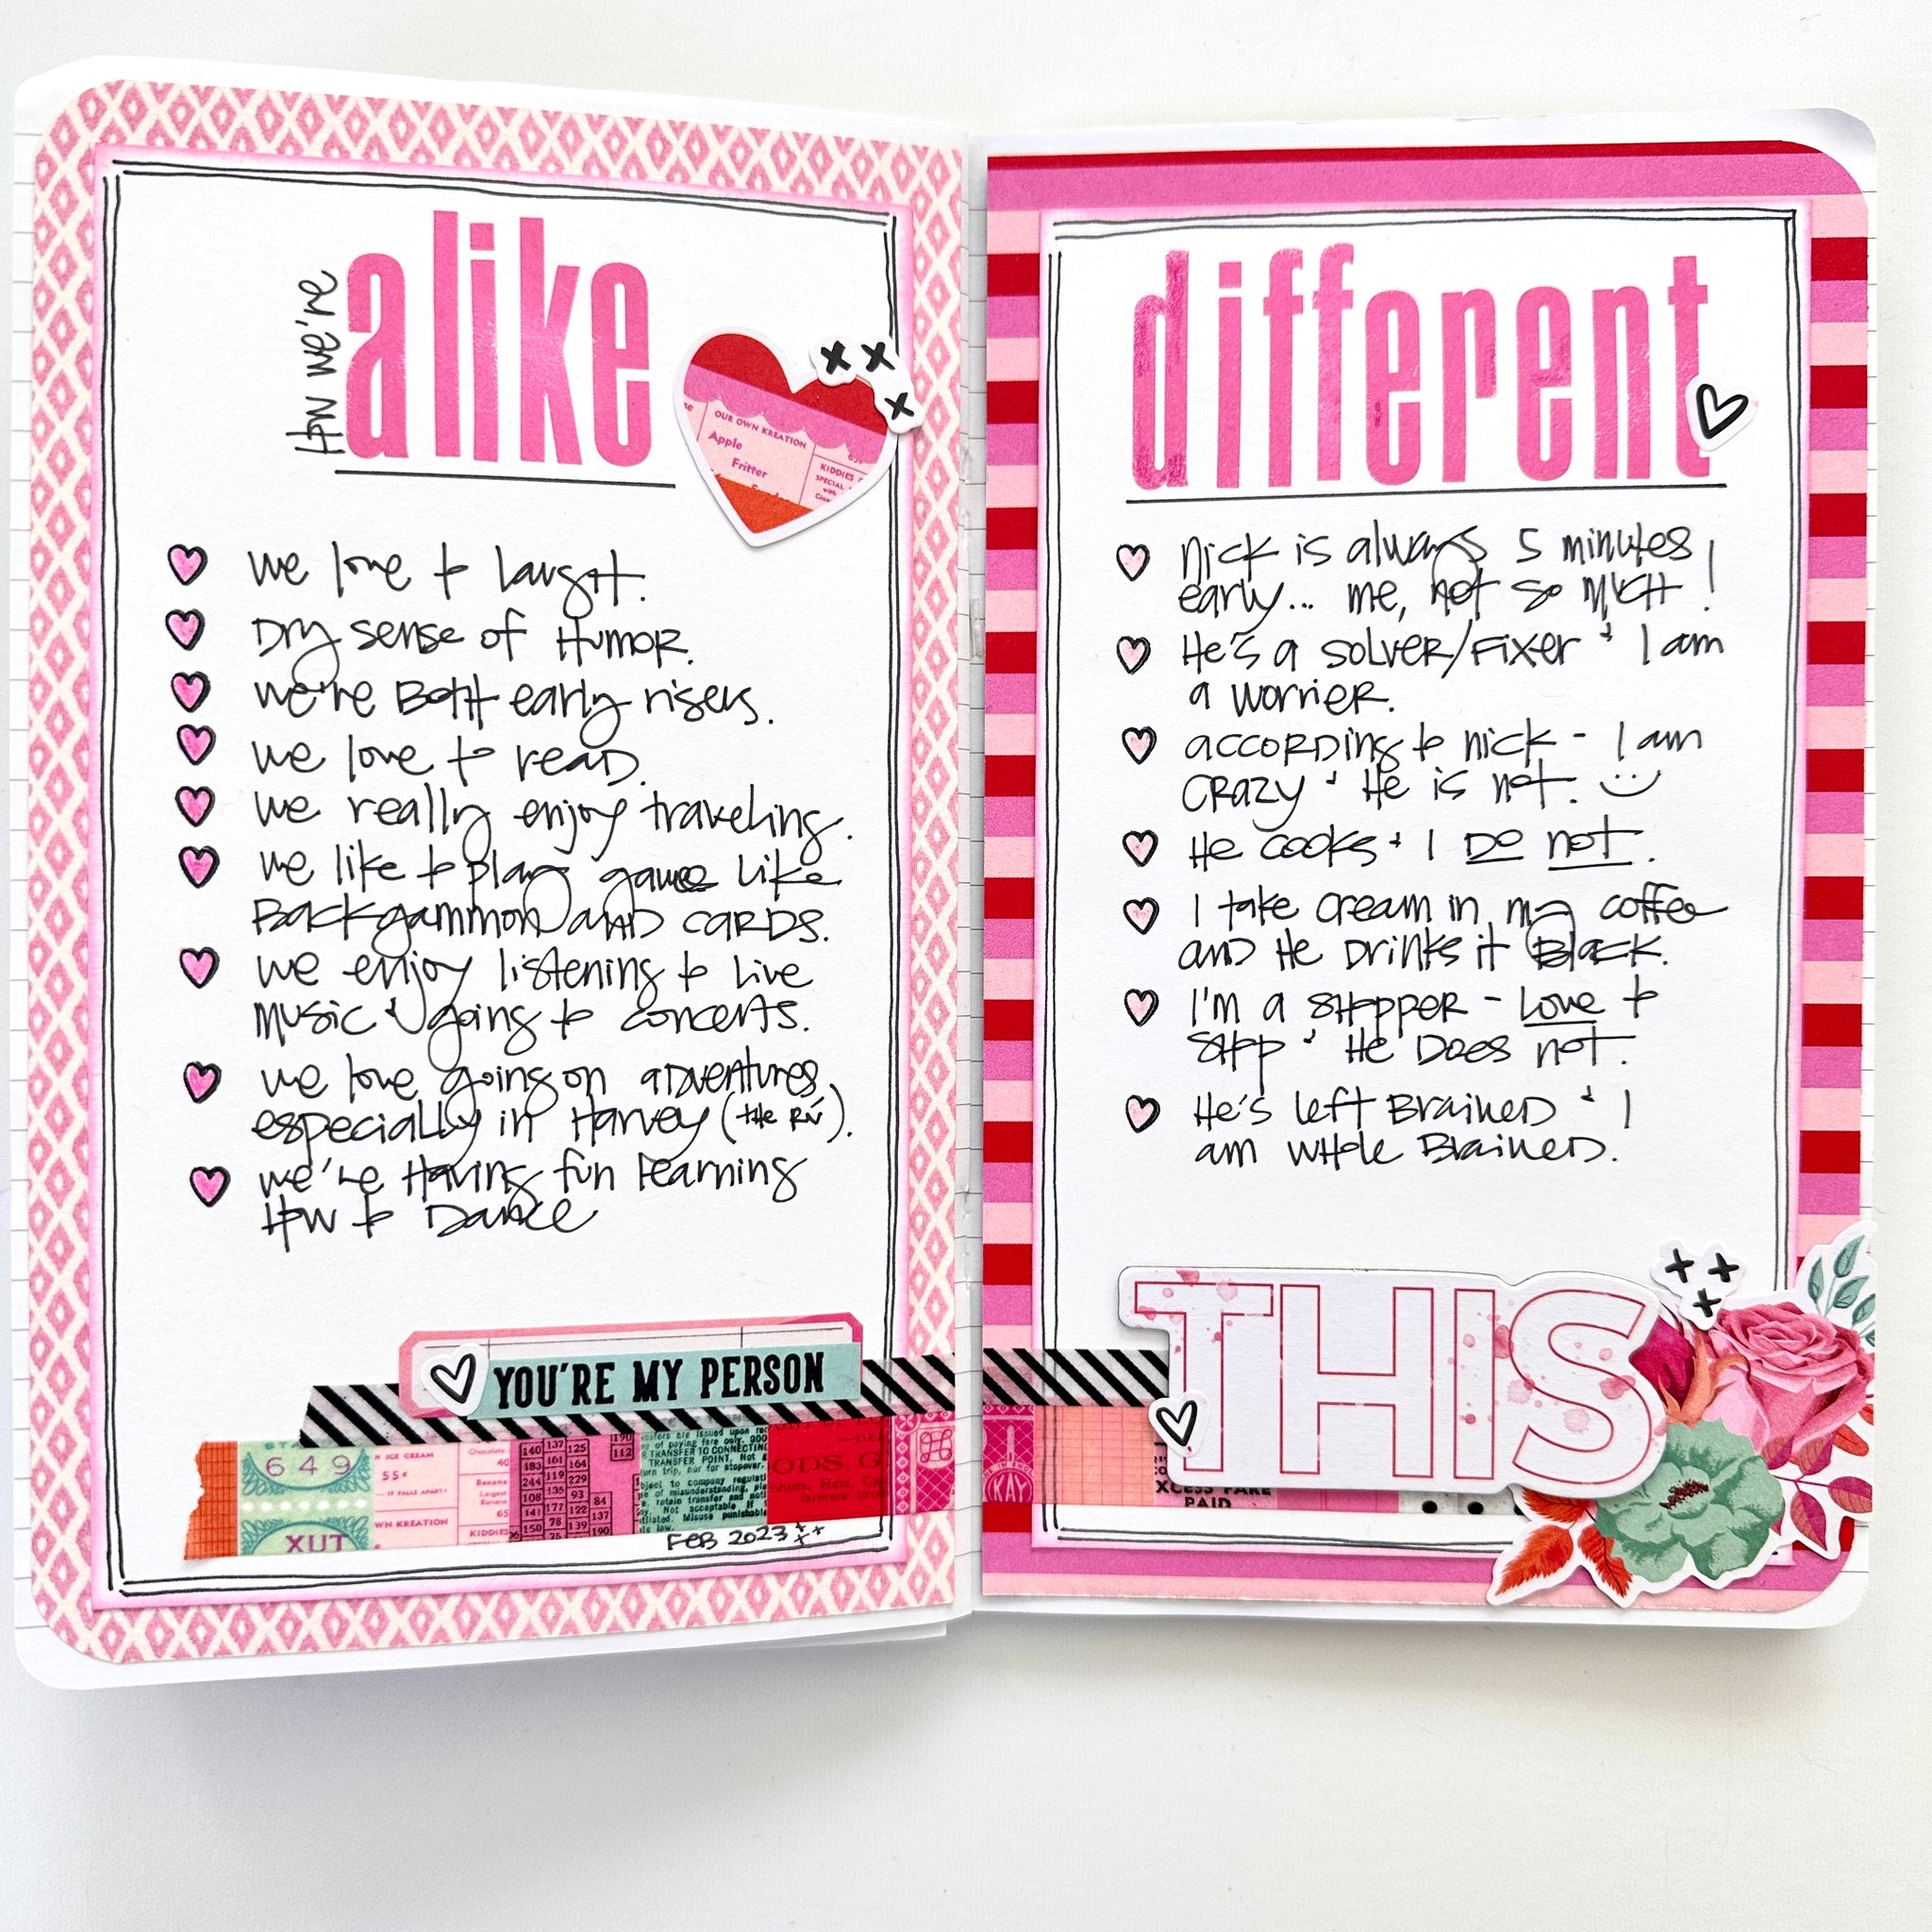 How we're
alike
OUR OWN KREATION
Apple
Fritter
KIDDIES
SPECIAL
with
we love to laugh.
Dry sense of Humor.
we're Both early risers.
we love to read.
we really enjoy traveling.
we like to play games like
Backgammon and cards.
we enjoy listening to live
music & going to concerts.
we love going on adventures,
especially in Harvey (the RV).
we're Having fun learning
How to Dance
YOU'RE MY PERSON
649
XUT
ICE CREAM
55¢
IT FALLS APART!
WN KREATION
Chocolate
40
Banana
Largest
Banana
65
KIDDIES
140 137 125
183 161 164
244 119 229
108 135 93
177 122
84
137
141
150 78 139 190
190
112
nsfers are issued upon
of paying fare only.
TRANSFER TO CONNECTING
TRANSFER POINT. Not
turn trip, nor for stopover.
bject to company regulati
of misunderstanding, ple
retain transfer and noti
Not acceptable if
tilated. Misuse punishable
law.
ODS, G
Shoes, Hats, Ca
farmers prod
FEB 2023
different
Nick is always 5 minutes
early... me, not so much!
He's a solver/fixer & I am
a worrier.
according to nick - I am
crazy & He is not.
He cooks & I Do not.
I take cream in my coffee
and He Drinks it Black.
I'm a shopper - Love to
shop & He Does not.
He's left Brained & I
am whole Brained.
THIS
KAY
XCESS FARE
PAID